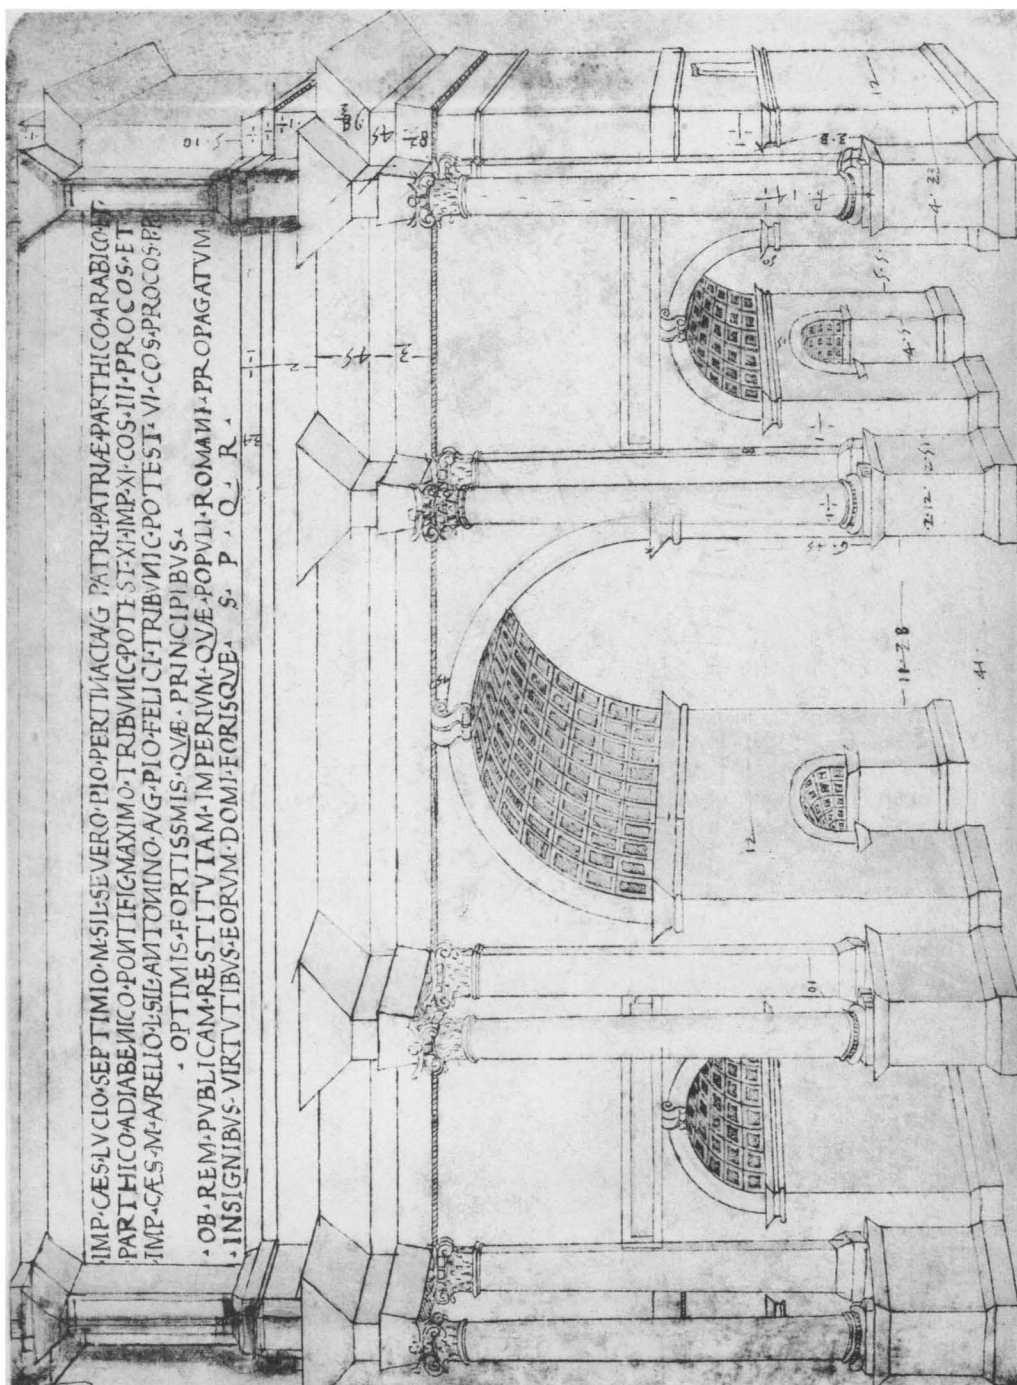 ·IMP·CÆS·LVCIO·SEPTIMIO·M·SIL·SEVERO·PIO·PERTINACIAVG PATRI·PATRIÆ·PARTHICO·ARABICO·ET·
PARTHICO·ADIABENICO·PONTIFIC·MAXIMO·TRIBVNIC·POTEST·XI·IMP·XI·COS·III·PROCOS·ET·
IMP·CÆS·M·AVRELIO·L·SIL·ANTONINO·AVG·PIO·FELICI·TRIBVNIC·POTEST·VI·COS·PROCOS·P·P·
·OPTIMIS·FORTISSMIS·QVÆ·PRINCIPIBVS·
·OB·REM·PVBLICAM·RESTITVTAM·IMPERIVM·QVÆ·POPVLI·ROMANI·PROPAGATVM·
·INSIGNIBVS·VIRTVTIBVS·EORVM·DOMI·FORISQVE· S · P · Q · R ·
5·10
1
2
45
3
45
12
10
12
11-28
41
2·12·
2·51
4·5
5·5
4·23